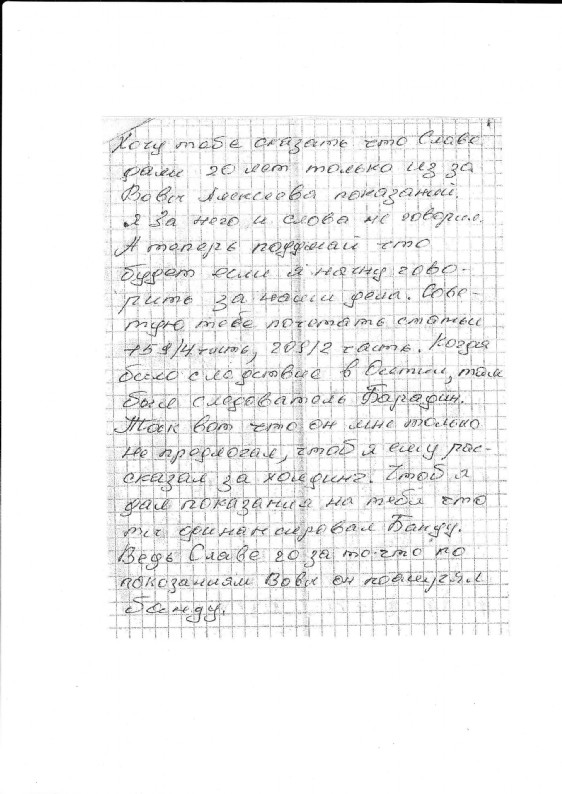 Хочу тебе сказать что Славе
дали 20 лет только из за
Вовы Алексеева показаний.
Я За него и слова не говорил.
А теперь подумай что
будет если я начну гово-
рить за наши дела. Сове-
тую тебе почетать статьи
159/4 часть, 209/2 часть. Когда
было следствие в Осетии, там
был следователь Барадин.
Так вот что он мне только
не предлогал, чтоб я ему рас-
сказал за холдинг. Чтоб я
дал показания на тебя что
ты финансировал Банду.
Ведь Славе 20 за то-что по
показаниям Вовы он
банду.